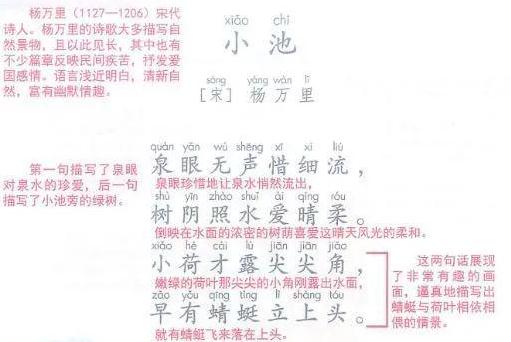 杨万里（1127—1206）宋代
诗人。杨万里的诗歌大多描写自
然景物，且以此见长，其中也有
不少篇章反映民间疾苦，抒发爱
国感情。语言浅近明白，清新自
然，富有幽默情趣。
xiǎo chí
小池
sòng yáng wàn lǐ
［宋］杨万里
quán yǎn wú shēng xī xì liú
泉眼无声惜细流，
泉眼珍惜地让泉水悄然流出，
shù yīn zhào shuǐ ài qíng róu
树阴照水爱晴柔。
倒映在水面的浓密的树荫喜爱这晴天风光的柔和。
xiǎo hé cái lù jiān jiān jiǎo
小荷才露尖尖角，
嫩绿的荷叶那尖尖的小角刚露出水面，
zǎo yǒu qīng tíng lì shàng tóu
早有蜻蜓立上头。
就有蜻蜓飞来落在上头。
第一句描写了泉眼
对泉水的珍爱，后一句
描写了小池旁的绿树。
这两句话展现
了非常有趣的画
面，逼真地描写出
蜻蜓与荷叶相依相
偎的情景。